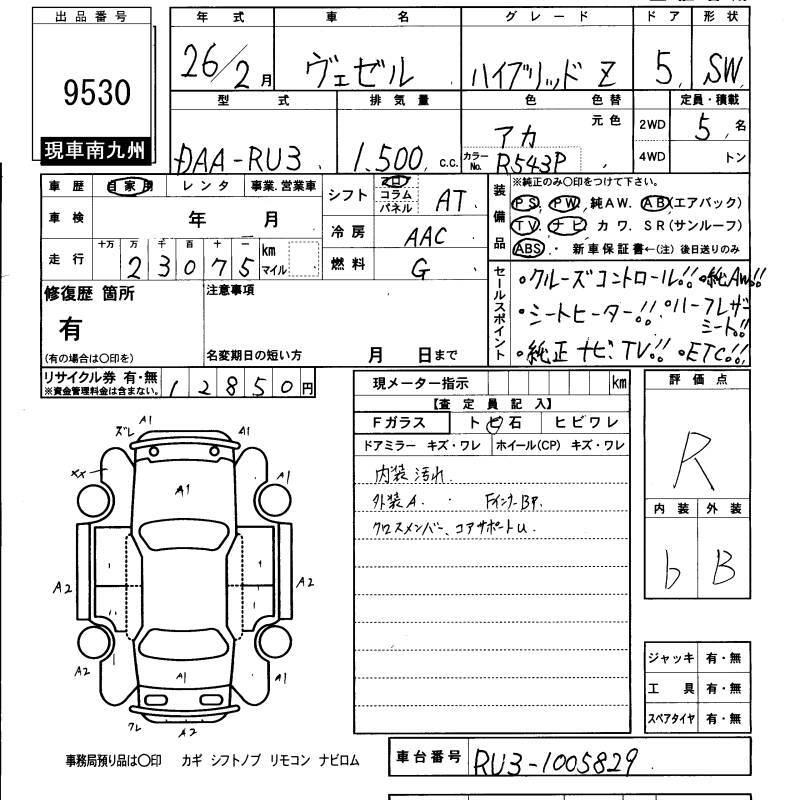 出品番号
9530
現車南九州
年式 車名 グレード ドア 形状
26/2月 ヴェゼル ハイブリッド Z 5 SW
型式 排気量 色 色替 定員・積載
DAA-RU3 1.500 c.c. アカ 元色 2WD 5 名
カラーNo. R543P 4WD トン
車歴 自家用 レンタ 事業.営業車
車検 年 月
走行 十万 万 千 百 十 一 km マイル
23075
シフト フロア コラム パネル AT
冷房 AAC
燃料 G
装備品
※純正のみ〇印をつけて下さい。
PS. PW. 純AW. AB(エアバック)
TV. ナビ カワ. SR(サンルーフ)
ABS ・ 新車保証書←(注)後日送りのみ
修復歴 箇所
有
(有の場合は〇印を)
注意事項
名変期日の短い方 月 日まで
セールスポイント
・クルーズコントロール!! ・純AW!!
・シートヒーター!! ・ハーフレザーシート!!
・純正ナビ、TV!! ・ETC!!
リサイクル券 有・無 12850円
※資金管理料金は含まない。
現メーター指示 km
【査定員記入】
Fガラス トビ石 ヒビワレ
ドアミラー キズ・ワレ ホイール(CP) キズ・ワレ
内装汚れ.
外装A. FインナーBP.
クロスメンバー、コアサポートU.
評価点
R
内装 外装
b B
ジャッキ 有・無
工具 有・無
スペアタイヤ 有・無
A1
ズレ A1
XX A1 A1
A2 A2
A2 A1 A1
ワレ A2
事務局預り品は〇印 カギ シフトノブ リモコン ナビロム
車台番号 RU3-1005829